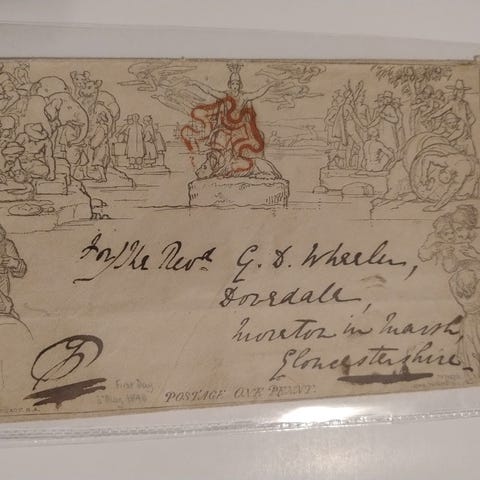 For/The Revd G. D. Wheeler,
Dovedale,
Moreton in Marsh,
Gloucestershire
First Day
6 May 1840
POSTAGE ONE PENNY.
R.A.